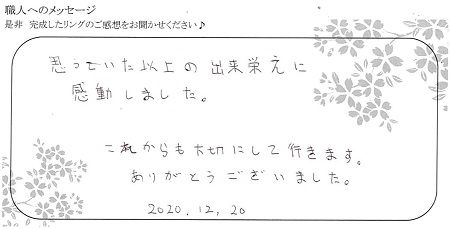 職人へのメッセージ
是非 完成したリングのご感想をお聞かせください♪
思っていた以上の出来栄えに
感動しました。
これからも大切にして行きます。
ありがとうございました。
2020.12.20